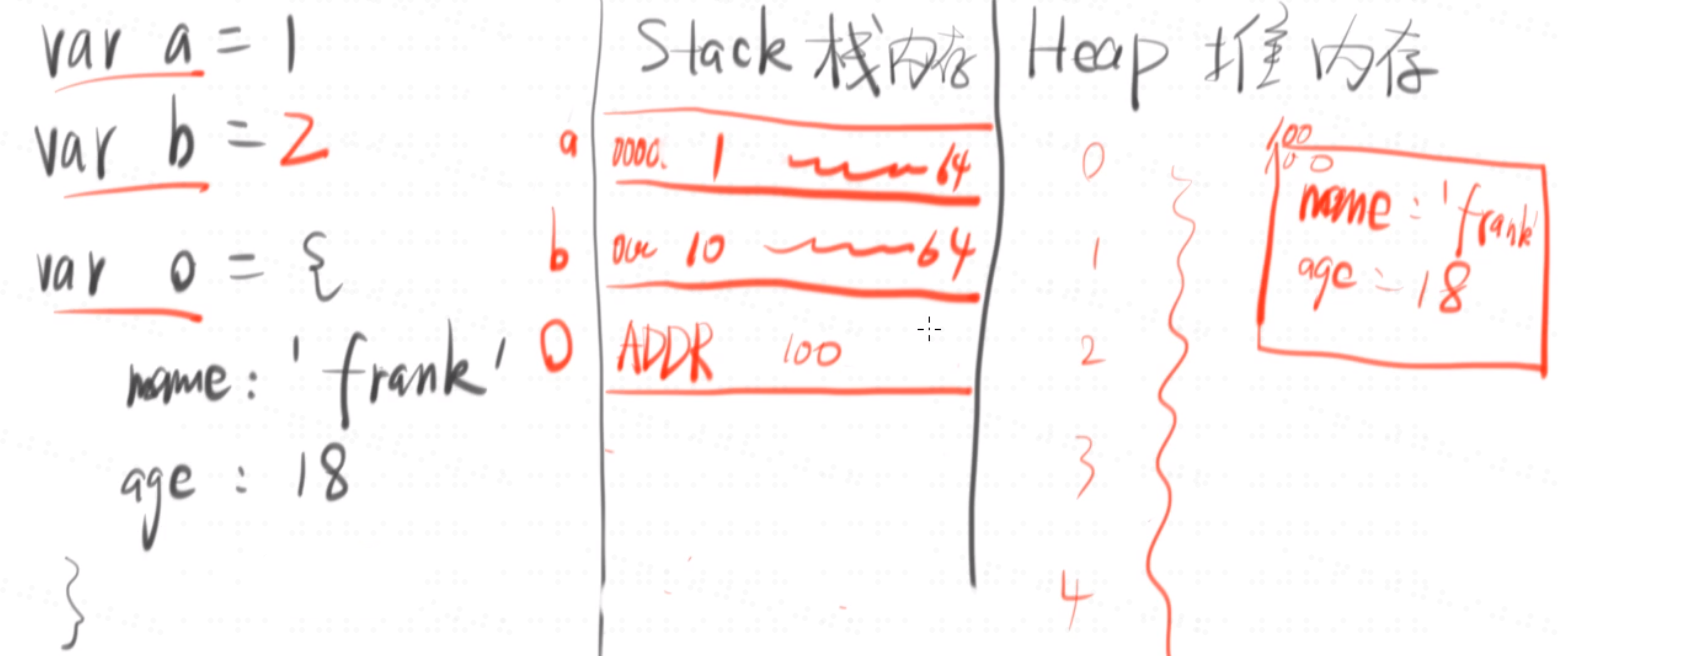 var a = 1
var b = 2
var o = {
name: 'frank'
age : 18
}
Stack 栈内存
a 0000. 1 64
b 10 64
O ADDR 100
Heap 堆内存
0
1
2
3
4
100
100
name : 'frank'
age : 18